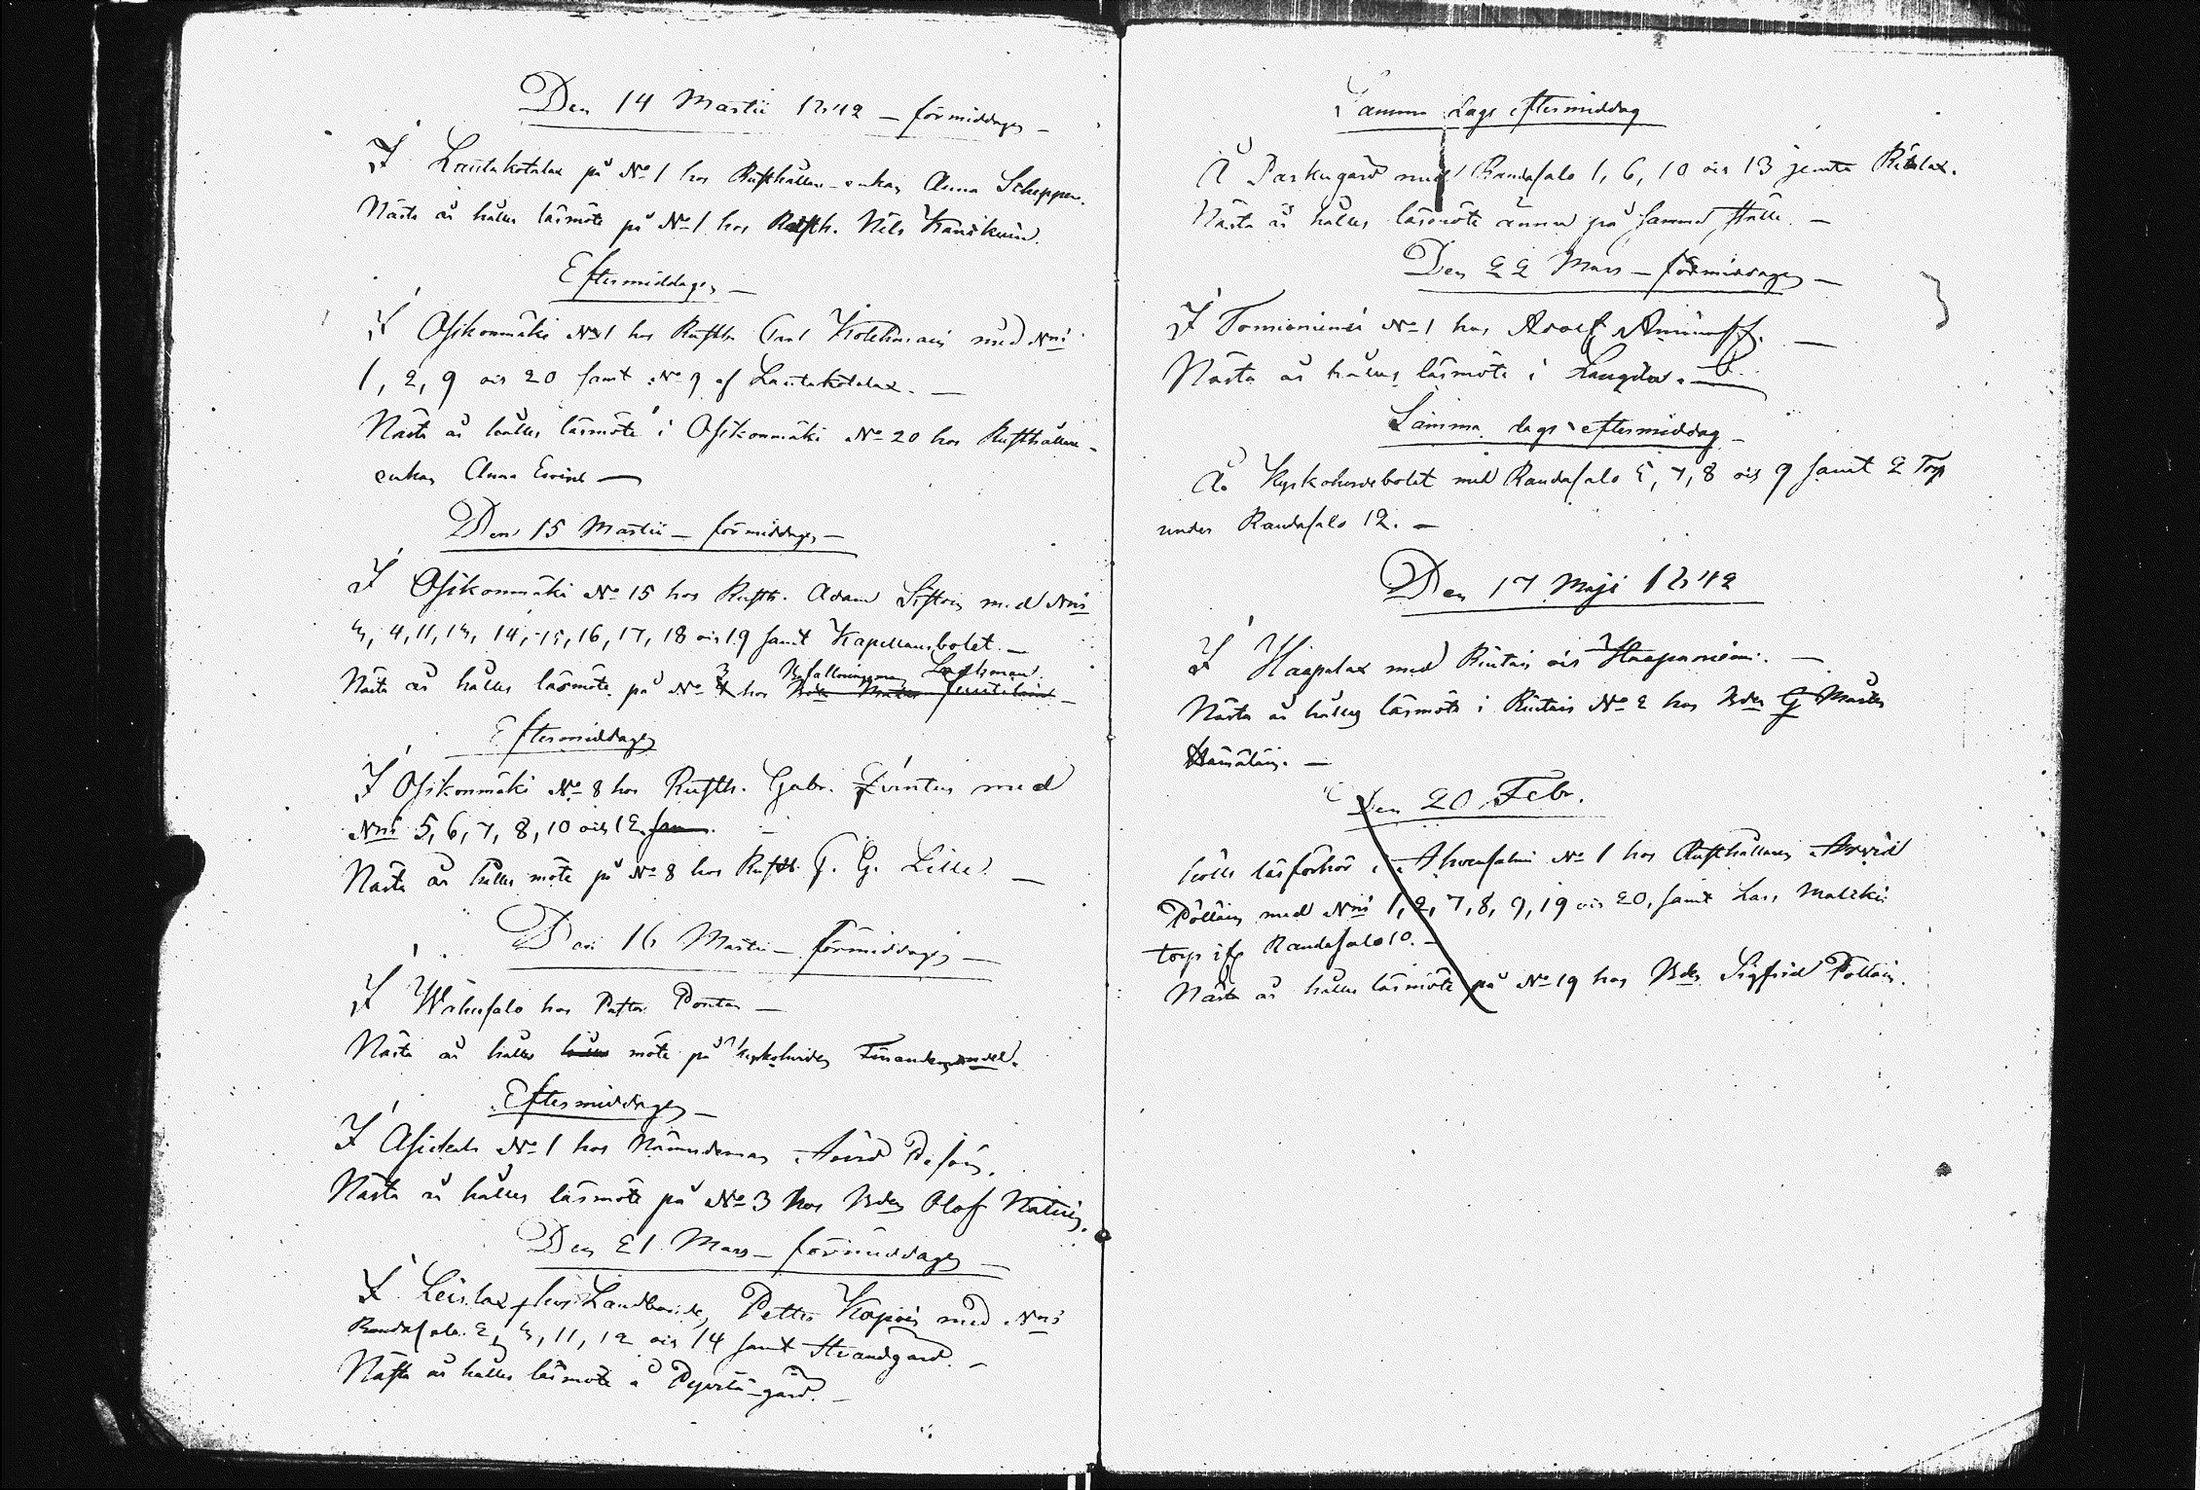 Den 14 Martii 1842 – förmiddagen –
I Lautakotalax på No 1 hos Rusthållare-enkan Anna Scheppen.
Nästa år hålles läsmöte på No 1 hos Rusth. Nils
Eftermiddagen –
I Osikonmäki No 1 hos Rusth. Carl Kotelmain med Nris
1, 2, 9 och 20 samt No 9 af Lautakotalax. –
Nästa år hålles läsmöte i Osikonmäki No 20 hos Rusthållare-
enkan Anna –
Den 15 Martii – förmiddagen –
I Osikonmäki No 15 hos Rusth. Adam med Nris
3, 4, 11, 13, 14, 15, 16, 17, 18 och 19 samt Kapellansbolet. –
Nästa år hålles läsmöte på No 3 hos Befallningsman Lagerman.
Eftermiddagen
I Osikonmäki No 8 hos Rusth. Gabr. Qvintus med
Nris 5, 6, 7, 8, 10 och 12 –
Nästa år hålles möte på No 8 hos Rusth. G. G. Lille –
Den 16 Martii – förmiddagen –
I Wähäsalo hos Pastor Pontan –
Nästa år hålles möte på
Eftermiddagen –
I Asikala No 1 hos Nämndeman Arvid
Nästa år hålles läsmöte på No 3 hos Bden Olof
Den 21 Mars – förmiddagen –
I Leislax hos Landbonde Petter Kapain med Nris
Randasalo 2, 3, 11, 12 och 14 samt Strandgård. –
Nästa år hålles läsmöte å Pyörälä-gård. –
Samma dags eftermiddag
Å Parkugård med Randasalo 1, 6, 10 och 13 jemte
Nästa år hålles läsmöte ännu på samma ställe. –
Den 22 Mars – förmiddagen –
I Tomianiemi No 1 hos Adolf Aminoff. –
Nästa år hålles läsmöte i
Samma dags eftermiddag –
Å Kyrkoherdebolet med Randasalo 5, 7, 8 och 9 samt 2 Torp
under Randasalo 12. –
Den 17 Maji 1842
I Haapalax med och Haapaniemi. –
Nästa år hålles läsmöte i No 2 hos Bden G Mårten
Hämäläin. –
Den 20 Febr.
hölls läsförhör i Ahvensalmi No 1 hos Rusthållaren Arvid
Pölläin med Nris 1, 2, 7, 8, 9, 19 och 20, samt Lars
torp ifr Randasalo 10. –
Nästa år hålles läsmöte på No 19 hos Bden Sigfrid Pölläin.